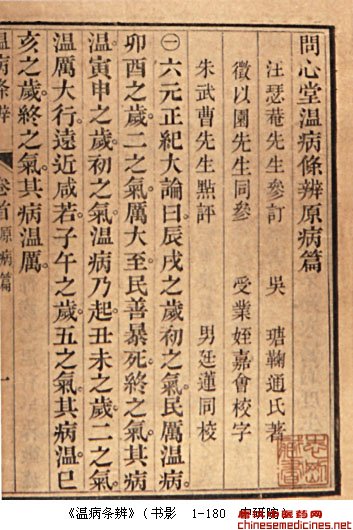 問心堂溫病條辨原病篇
汪瑟菴先生參訂 吳 瑭鞠通氏著
徵以園先生同參 受業姪嘉會校字
朱武曹先生點評 男廷蓮同校
㊀六元正紀大論曰辰戌之歲初之氣民厲溫病
卯酉之歲二之氣厲大至民善暴死終之氣其病
溫寅申之歲初之氣溫病乃起丑未之歲二之氣
溫厲大行遠近咸若子午之歲五之氣其病溫巳
亥之歲終之氣其病溫厲
溫病條辨 卷首 原病篇 一
《温病条辨》(书影 1-180
chinesemedicines.net